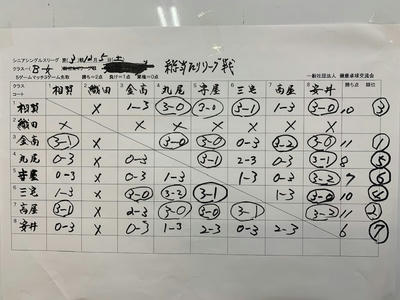 シニアシングルスリーグ
クラス B
5ゲームマッチ3ゲーム先取 勝ち=2点 負け=1点 棄権=0点
一般社団法人 健康卓球交流会
クラス 1 2 3 4 5 6 7 8 勝ち点 順位
コート 相賀 織田 金高 丸尾 守屋 三宅 高屋 安井
1 相賀 X 1-3 3-0 3-0 3-1 1-3 3-0 10 3
2 織田 X X X X X X X
3 金高 3-1 X 3-0 3-0 0-3 3-2 3-0 11 1
4 丸尾 0-3 X 0-3 3-1 2-3 0-3 3-1 8 5
5 守屋 0-3 X 0-3 1-3 1-3 0-3 3-2 7 6
6 三宅 1-3 X 3-0 3-2 3-1 1-3 3-0 10
7 高屋 3-1 X 2-3 3-0 3-0 3-1 3-2 11 2
8 安井 0-3 X 0-3 1-3 2-3 0-3 2-3 6 7